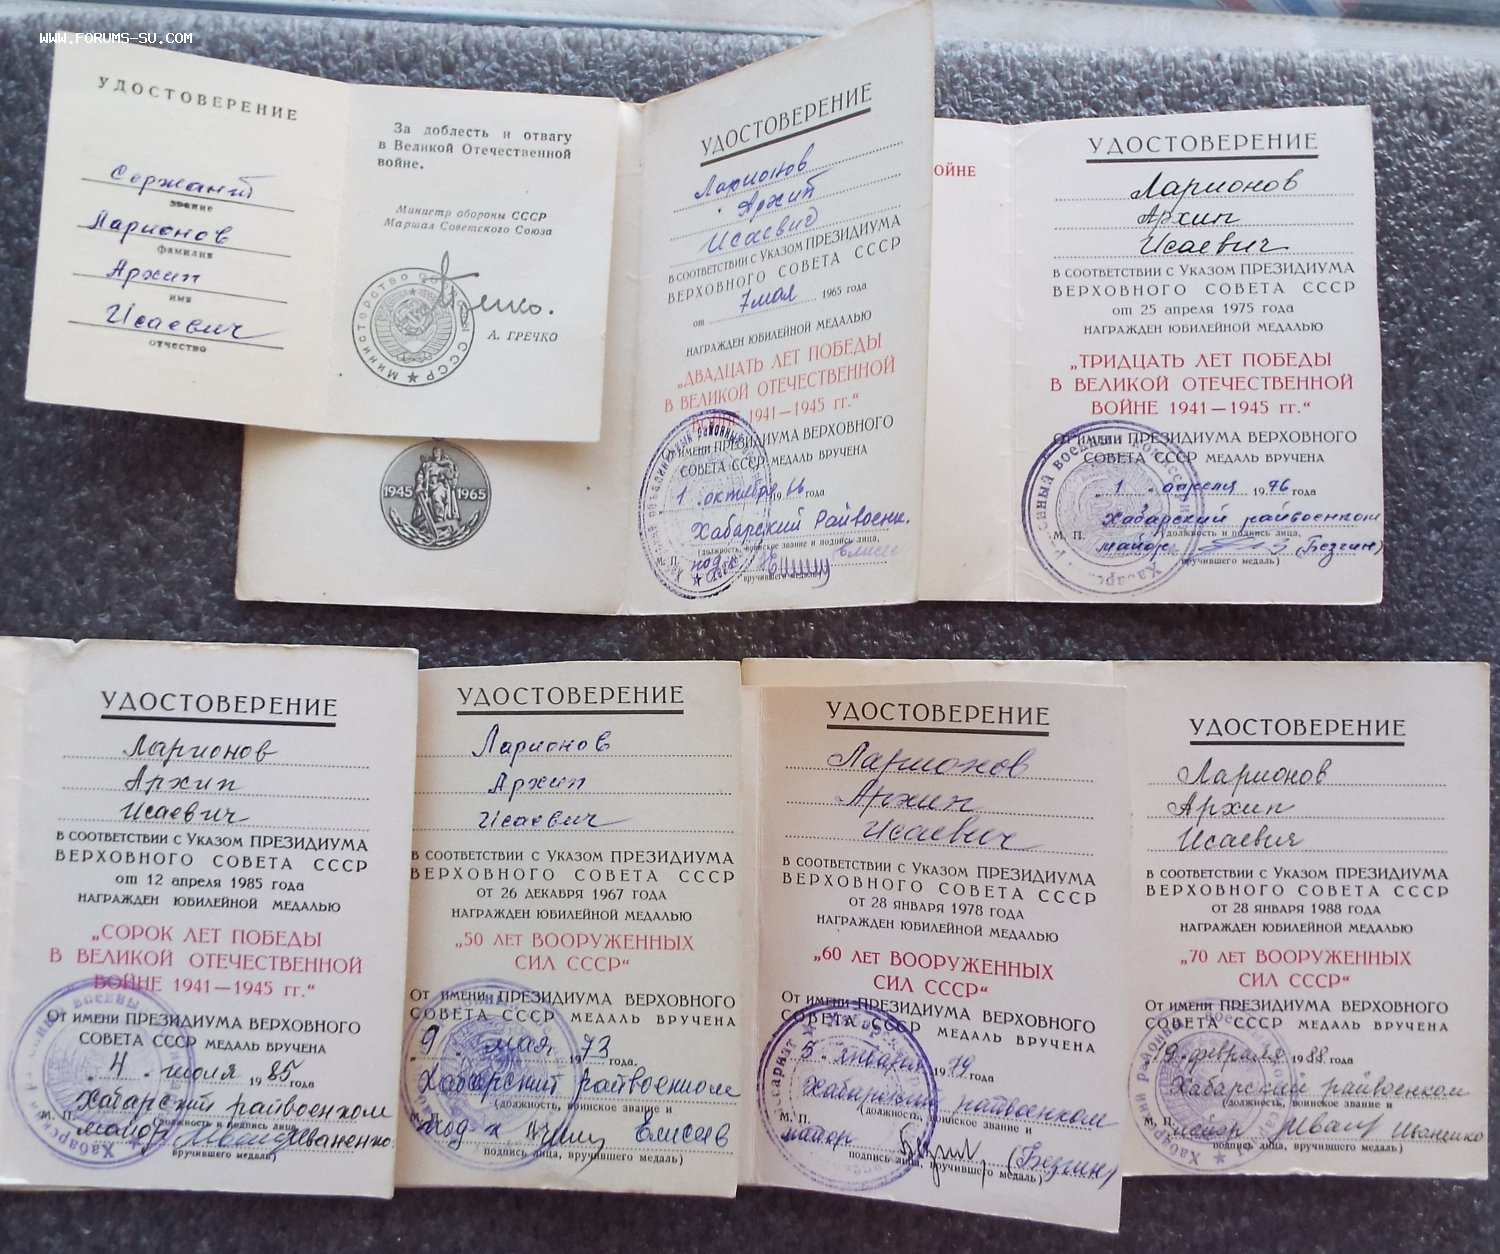 www.forums-su.com
УДОСТОВЕРЕНИЕ
Сержант
звание
Ларионов
фамилия
Архип
имя
Исаевич
отчество
За доблесть и отвагу
в Великой Отечественной
войне.
Министр обороны СССР
Маршал Советского Союза
А. ГРЕЧКО
1945 1965
УДОСТОВЕРЕНИЕ
Ларионов
Архип
Исаевич
В СООТВЕТСТВИИ С УКАЗОМ ПРЕЗИДИУМА
ВЕРХОВНОГО СОВЕТА СССР
от 7 мая 1965 года
НАГРАЖДЕН ЮБИЛЕЙНОЙ МЕДАЛЬЮ
„ДВАДЦАТЬ ЛЕТ ПОБЕДЫ
В ВЕЛИКОЙ ОТЕЧЕСТВЕННОЙ
ВОЙНЕ 1941—1945 гг.“
ОТ ИМЕНИ ПРЕЗИДИУМА ВЕРХОВНОГО
СОВЕТА СССР МЕДАЛЬ ВРУЧЕНА
1 октября 1966 года
Хабарский Райвоенк.
(должность, воинское звание и подпись лица,
М. П.
вручившего медаль)
ОЙНЕ
УДОСТОВЕРЕНИЕ
Ларионов
Архип
Исаевич
В СООТВЕТСТВИИ С УКАЗОМ ПРЕЗИДИУМА
ВЕРХОВНОГО СОВЕТА СССР
от 25 апреля 1975 года
НАГРАЖДЕН ЮБИЛЕЙНОЙ МЕДАЛЬЮ
„ТРИДЦАТЬ ЛЕТ ПОБЕДЫ
В ВЕЛИКОЙ ОТЕЧЕСТВЕННОЙ
ВОЙНЕ 1941—1945 гг.“
ОТ ИМЕНИ ПРЕЗИДИУМА ВЕРХОВНОГО
СОВЕТА СССР МЕДАЛЬ ВРУЧЕНА
„1“ апреля 1976 года
Хабарский райвоенком
М. П. (должность и подпись лица,
майор (Безгин)
вручившего медаль)
УДОСТОВЕРЕНИЕ
Ларионов
Архип
Исаевич
В СООТВЕТСТВИИ С УКАЗОМ ПРЕЗИДИУМА
ВЕРХОВНОГО СОВЕТА СССР
от 12 апреля 1985 года
НАГРАЖДЕН ЮБИЛЕЙНОЙ МЕДАЛЬЮ
„СОРОК ЛЕТ ПОБЕДЫ
В ВЕЛИКОЙ ОТЕЧЕСТВЕННОЙ
ВОЙНЕ 1941—1945 гг.“
ОТ ИМЕНИ ПРЕЗИДИУМА ВЕРХОВНОГО
СОВЕТА СССР МЕДАЛЬ ВРУЧЕНА
„4“ июля 1985 года
Хабарский райвоенком
М. П. (должность и подпись лица,
майор Иваненко
вручившего медаль)
УДОСТОВЕРЕНИЕ
Ларионов
Архип
Исаевич
В СООТВЕТСТВИИ С УКАЗОМ ПРЕЗИДИУМА
ВЕРХОВНОГО СОВЕТА СССР
ОТ 26 ДЕКАБРЯ 1967 ГОДА
НАГРАЖДЕН ЮБИЛЕЙНОЙ МЕДАЛЬЮ
„50 ЛЕТ ВООРУЖЕННЫХ
СИЛ СССР“
ОТ ИМЕНИ ПРЕЗИДИУМА ВЕРХОВНОГО
СОВЕТА СССР МЕДАЛЬ ВРУЧЕНА
„9“ мая 1973 года.
Хабарский райвоенком
(должность, воинское звание и
Елисеев
подпись лица, вручившего медаль)
УДОСТОВЕРЕНИЕ
Ларионов
Архип
Исаевич
В СООТВЕТСТВИИ С УКАЗОМ ПРЕЗИДИУМА
ВЕРХОВНОГО СОВЕТА СССР
ОТ 28 ЯНВАРЯ 1978 ГОДА
НАГРАЖДЕН ЮБИЛЕЙНОЙ МЕДАЛЬЮ
„60 ЛЕТ ВООРУЖЕННЫХ
СИЛ СССР“
ОТ ИМЕНИ ПРЕЗИДИУМА ВЕРХОВНОГО
СОВЕТА СССР МЕДАЛЬ ВРУЧЕНА
5 января 1979 года
Хабарский райвоенком
М. П. (должность, воинское звание и
майор (Безгин)
подпись лица, вручившего медаль)
УДОСТОВЕРЕНИЕ
Ларионов
Архип
Исаевич
В СООТВЕТСТВИИ С УКАЗОМ ПРЕЗИДИУМА
ВЕРХОВНОГО СОВЕТА СССР
ОТ 28 ЯНВАРЯ 1988 ГОДА
НАГРАЖДЕН ЮБИЛЕЙНОЙ МЕДАЛЬЮ
„70 ЛЕТ ВООРУЖЕННЫХ
СИЛ СССР“
ОТ ИМЕНИ ПРЕЗИДИУМА ВЕРХОВНОГО
СОВЕТА СССР МЕДАЛЬ ВРУЧЕНА
19 февраля 1988 года
Хабарский райвоенком
(должность, воинское звание и
М. П.
майор Иваненко
подпись лица, вручившего медаль)